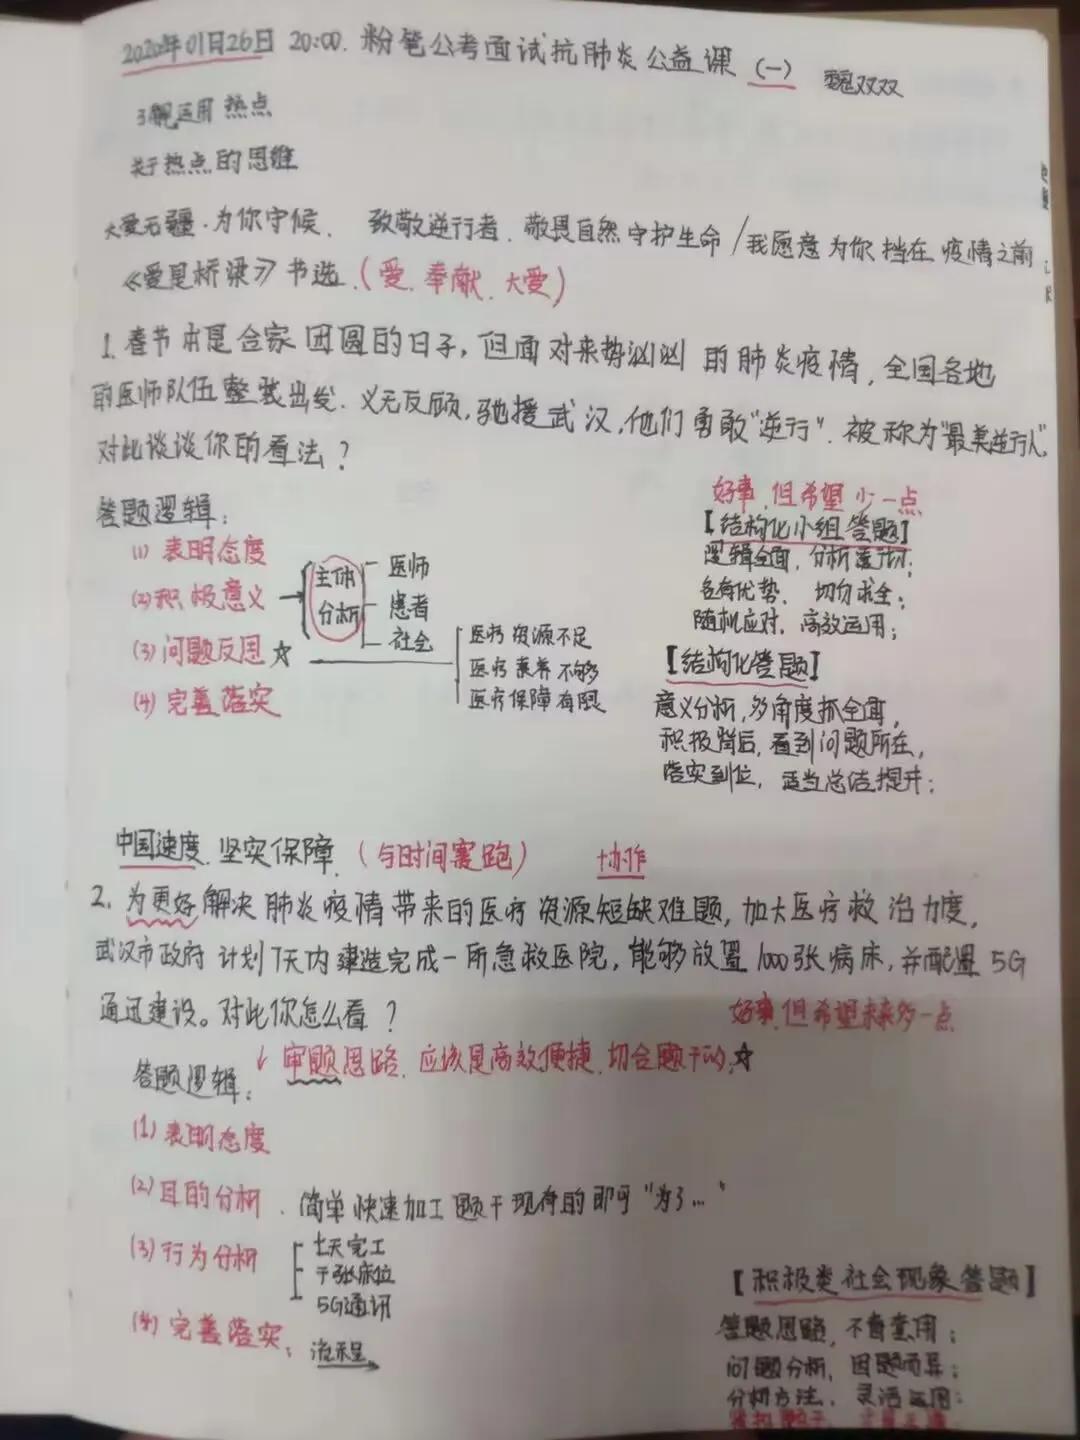 2020年01月26日 20:00. 粉笔公考面试抗肺炎公益课 (一) 魏双双
了解运用热点
关于热点的思维
大爱无疆.为你守候. 致敬逆行者.敬畏自然守护生命/我愿意为你挡在疫情之前
《爱是桥梁》书选.(爱.奉献.大爱)
1.春节本是合家团圆的日子,但面对来势汹汹的肺炎疫情,全国各地
的医师队伍整装出发.义无反顾,驰援武汉,他们勇敢"逆行".被称为"最美逆行人".
对此谈谈你的看法?
答题逻辑:
(1)表明态度
(2)积极意义
(3)问题反思☆
(4)完善落实
主体
分析
医师
患者
社会
医疗资源不足
医疗素养不够
医疗保障有限
好事,但希望少一点
【结构化小组答题】
逻辑全面,分析透彻;
各有优势.切勿求全;
随机应对.高效运用;
【结构化答题】
意义分析,多角度抓全面,
积极背后,看到问题所在,
落实到位,适当总结提升;
中国速度.坚实保障.(与时间赛跑) +协作
2.为更好解决肺炎疫情带来的医疗资源短缺难题,加大医疗救治力度,
武汉市政府计划7天内建造完成一所急救医院,能够放置1000张病床,并配置5G
通迅建设。对此你怎么看?
好事,但希望未来多一点
答题逻辑:
审题思路.应该是高效便捷.切合题干的.☆
(1)表明态度
(2)目的分析.简单快速加工题干现存的即可"为了..."
(3)行为分析
七天完工
千张床位
5G通讯
(4)完善落实:流程
【积极类社会现象答题】
答题思路,不盲套用;
问题分析,因题而异;
分析方法.灵活运用;